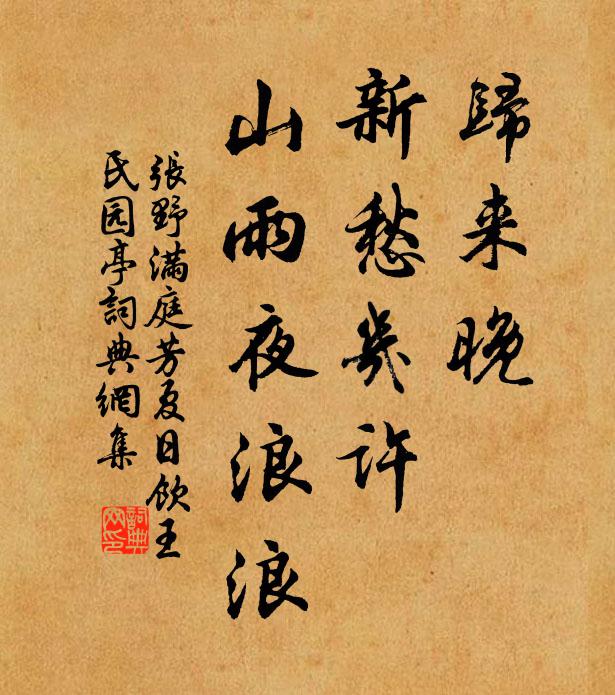 歸来晚
新愁幾許
山雨夜浪浪
張野滿庭芳夏日飲王
氏园亭詞典網集
詞典网印